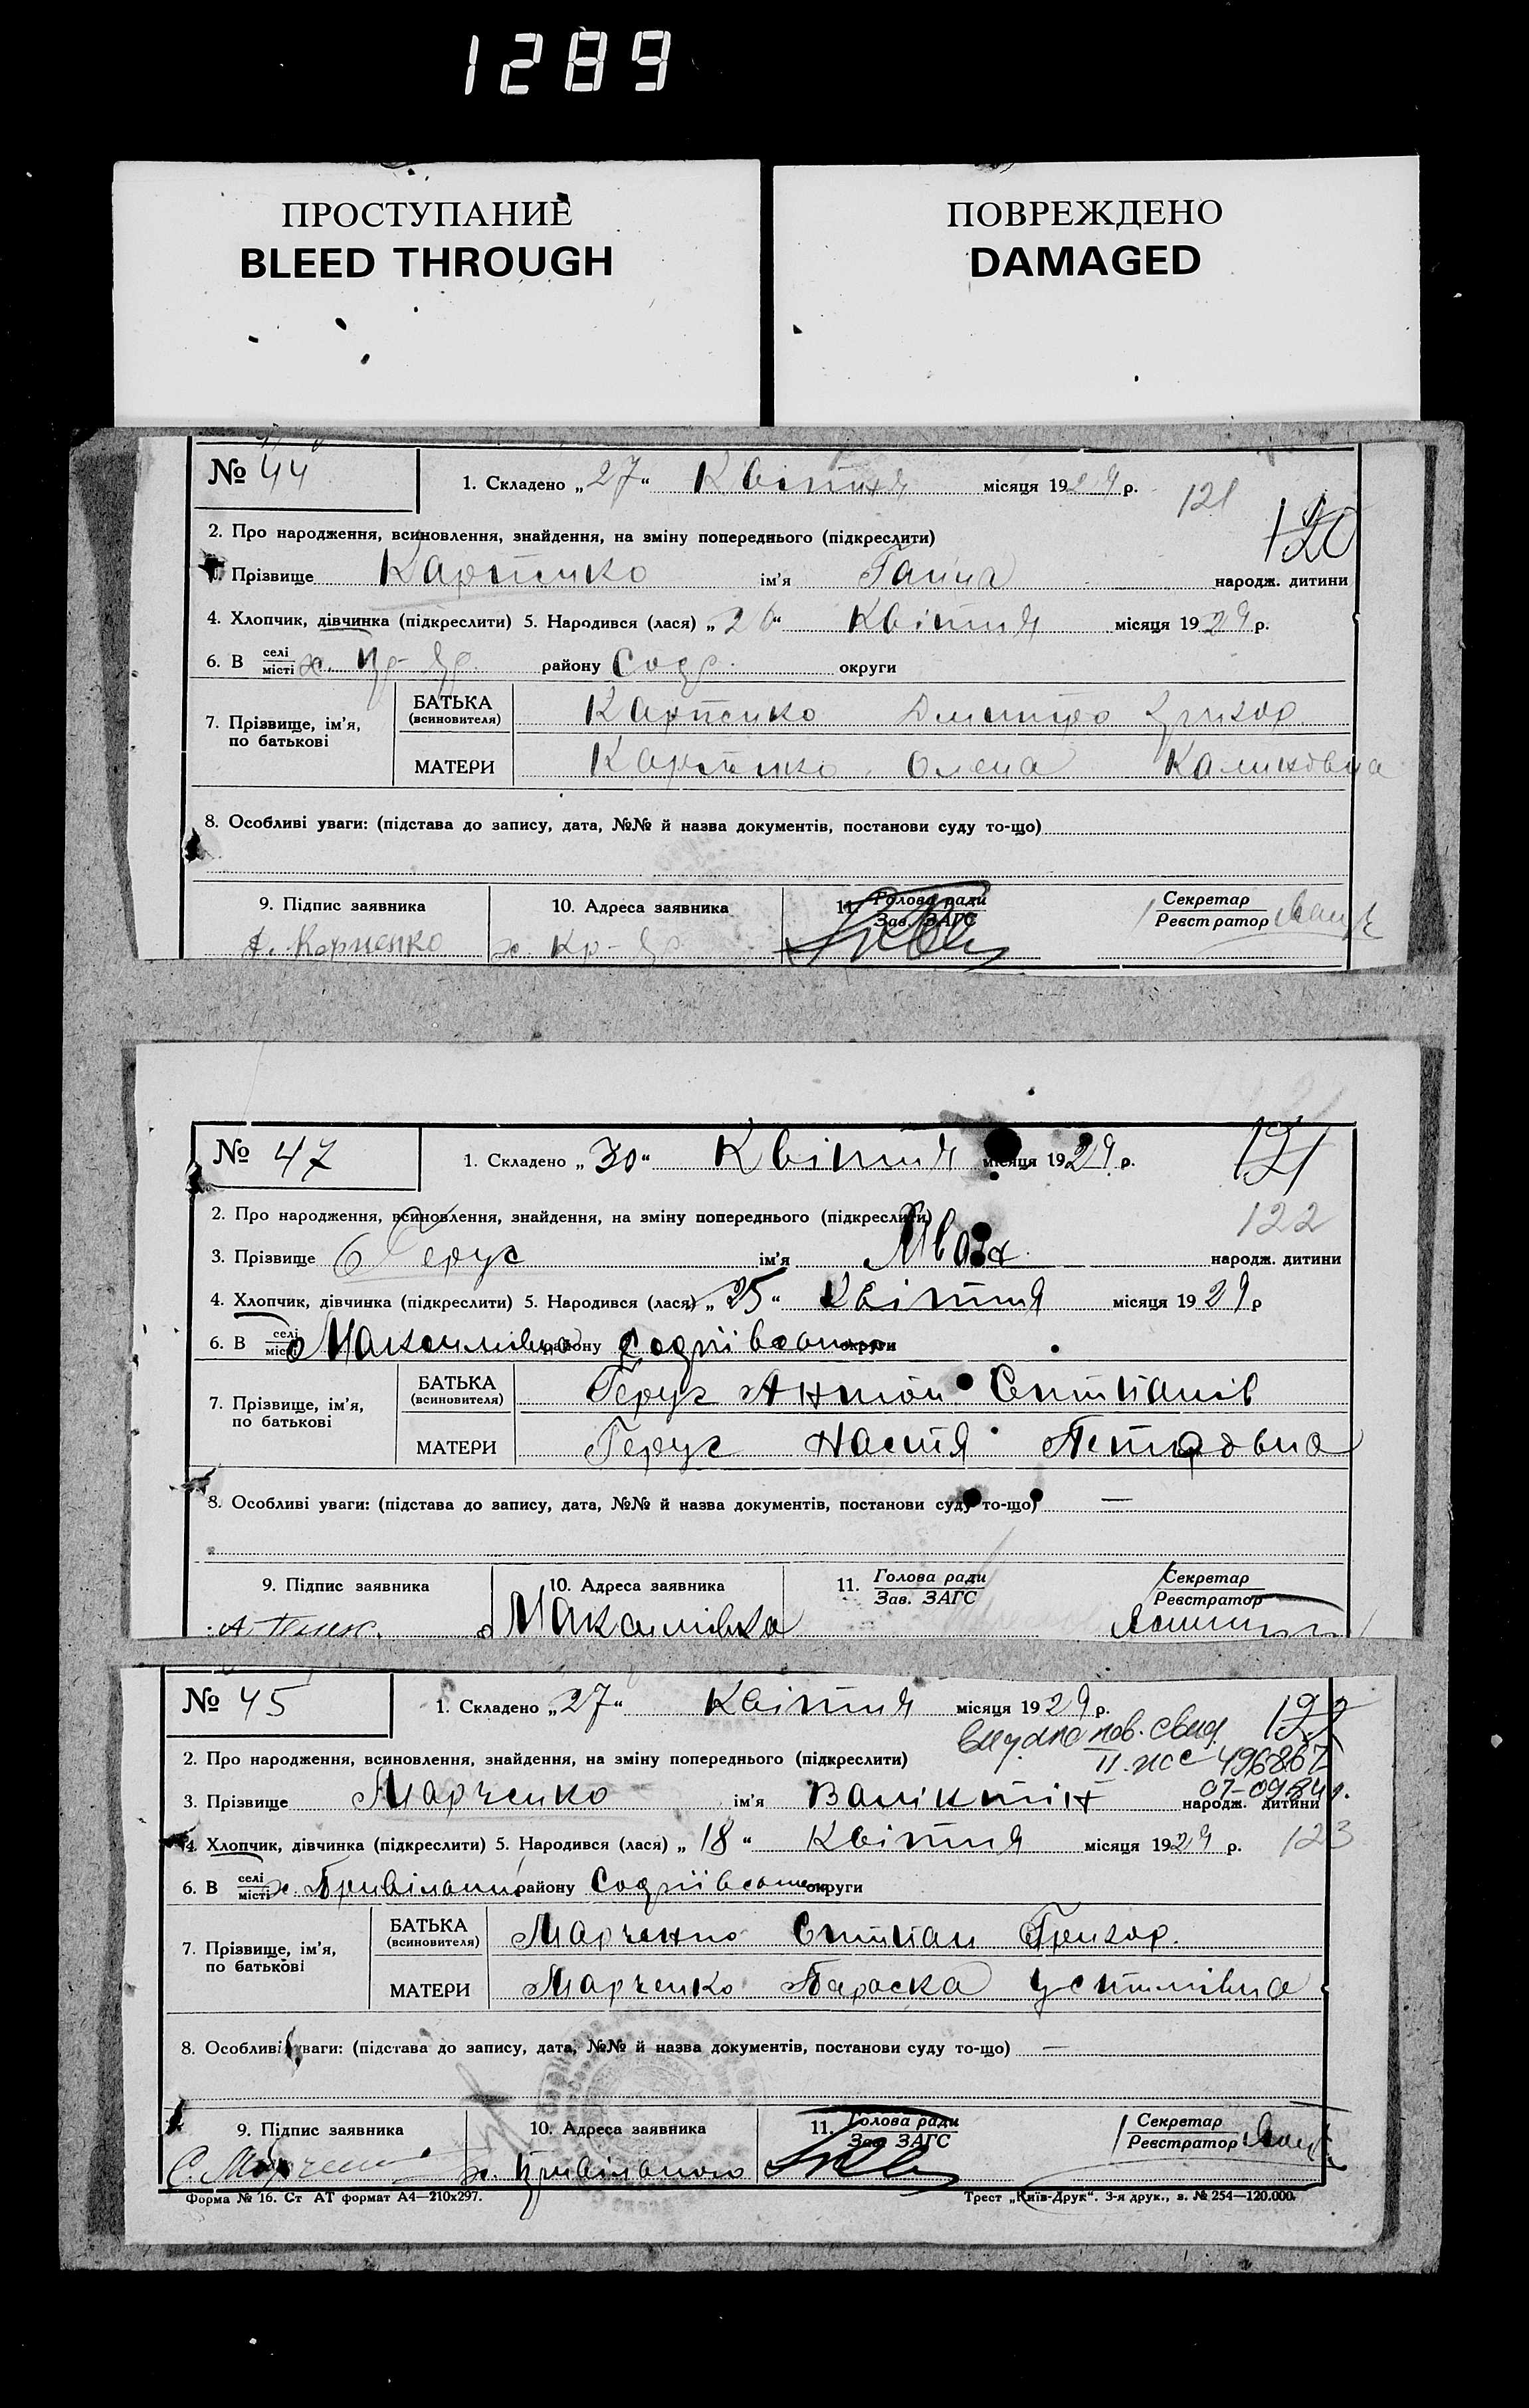 1289
ПРОСТУПАНИЕ
BLEED THROUGH
ПОВРЕЖДЕНО
DAMAGED
№ 44
1. Складено „27“ Квітня місяця 1929 р.
121
120
2. Про народження, всиновлення, знайдення, на зміну попереднього (підкреслити)
Прізвище Карпенко ім'я Ганна народж. дитини
4. Хлопчик, дівчинка (підкреслити) 5. Народився (лася) „26“ Квітня місяця 1929 р.
6. В селі місті х. району округи
7. Прізвище, ім'я, по батькові
БАТЬКА (всиновителя) Карпенко Дмитро Григор.
МАТЕРИ Карпенко Олена
8. Особливі уваги: (підстава до запису, дата, №№ й назва документів, постанови суду то-що)
9. Підпис заявника
10. Адреса заявника
11. Голова ради Зав. ЗАГС
Секретар Реєстратор
х. Кр-
№ 47
1. Складено „30“ Квітня місяця 1929 р.
121
122
2. Про народження, всиновлення, знайдення, на зміну попереднього (підкреслити)
3. Прізвище Герус ім'я народж. дитини
4. Хлопчик, дівчинка (підкреслити) 5. Народився (лася) „25“ Квітня місяця 1929 р
6. В селі місті району округи
7. Прізвище, ім'я, по батькові
БАТЬКА (всиновителя) Герус Антон Степанів
МАТЕРИ Герус Настя Петровна
8. Особливі уваги: (підстава до запису, дата, №№ й назва документів, постанови суду то-що) —
9. Підпис заявника
10. Адреса заявника
11. Голова ради Зав. ЗАГС
Секретар Реєстратор
№ 45
1. Складено „27“ Квітня місяця 1929 р.
122
видано пов. свид.
496867
2. Про народження, всиновлення, знайдення, на зміну попереднього (підкреслити)
3. Прізвище Марченко ім'я народж. дитини
4. Хлопчик, дівчинка (підкреслити) 5. Народився (лася) „18“ Квітня місяця 1929 р.
123
6. В селі місті х. району округи
7. Прізвище, ім'я, по батькові
БАТЬКА (всиновителя) Марченко Степан Григор.
МАТЕРИ Марченко Параска Устимівна
8. Особливі уваги: (підстава до запису, дата, №№ й назва документів, постанови суду то-що) —
9. Підпис заявника
10. Адреса заявника
11. Голова ради Зав. ЗАГС
Секретар Реєстратор
Форма № 16. Ст АТ формат А4—210х297.
Трест „Київ-Друк“. 3-я друк., з. № 254—120.000.